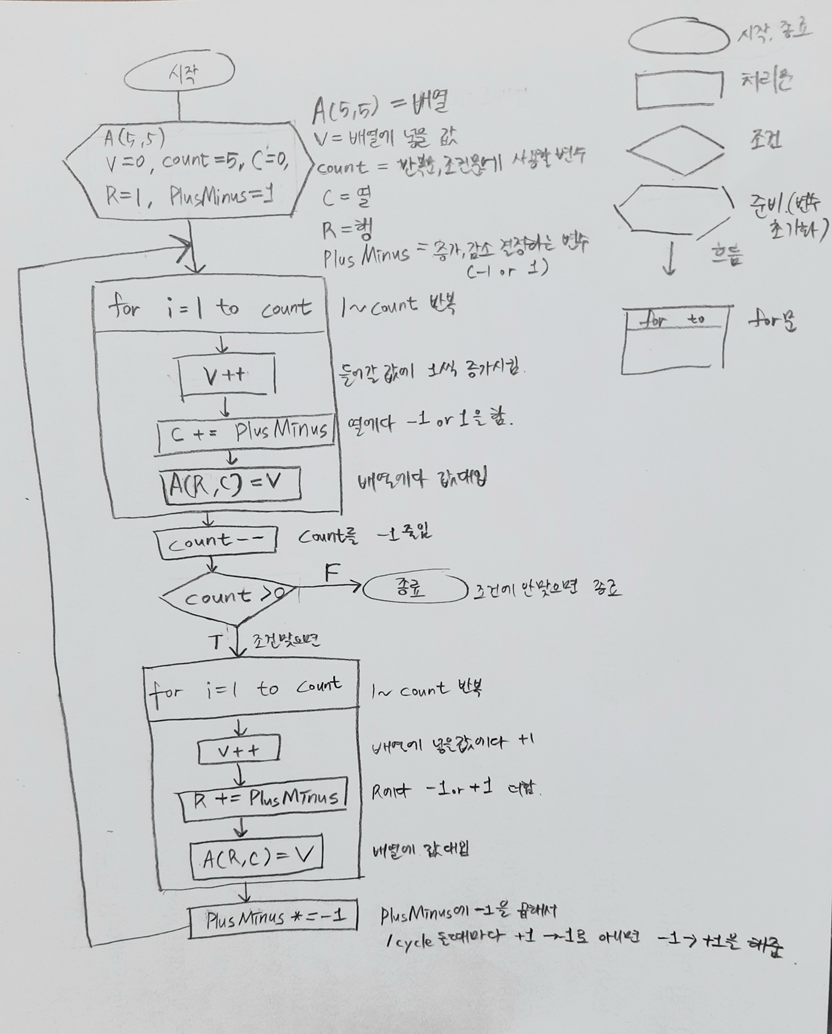 시작
A(5,5)
V=0, count=5, C=0,
R=1, PlusMinus=1
A(5,5) = 배열
V = 배열에 넣을 값
count = 반복문,조건문에 사용할 변수
C = 열
R = 행
Plus Minus = 증가,감소 결정하는 변수
(-1 or 1)
시작, 종료
처리문
조건
준비(변수
초기화)
흐름
for to
for문
for i=1 to count
1~count 반복
V++
들어갈 값에 1씩 증가시킴
C += PlusMinus
열에다 -1 or 1을 함.
A(R,C)=V
배열에다 값대입
count--
count를 -1 줄임
count >0
F
종료
조건에 안맞으면 종료
T
조건맞으면
for i=1 to count
1~ count 반복
V++
배열에 넣을값에다 +1
R += PlusMinus
R에다 -1 or +1 더함.
A(R,C)=V
배열에 값대입
PlusMinus *=-1
PlusMinus에 -1을 곱해서
1cycle 돌때마다 +1 →-1로 아니면 -1→+1을 해줌